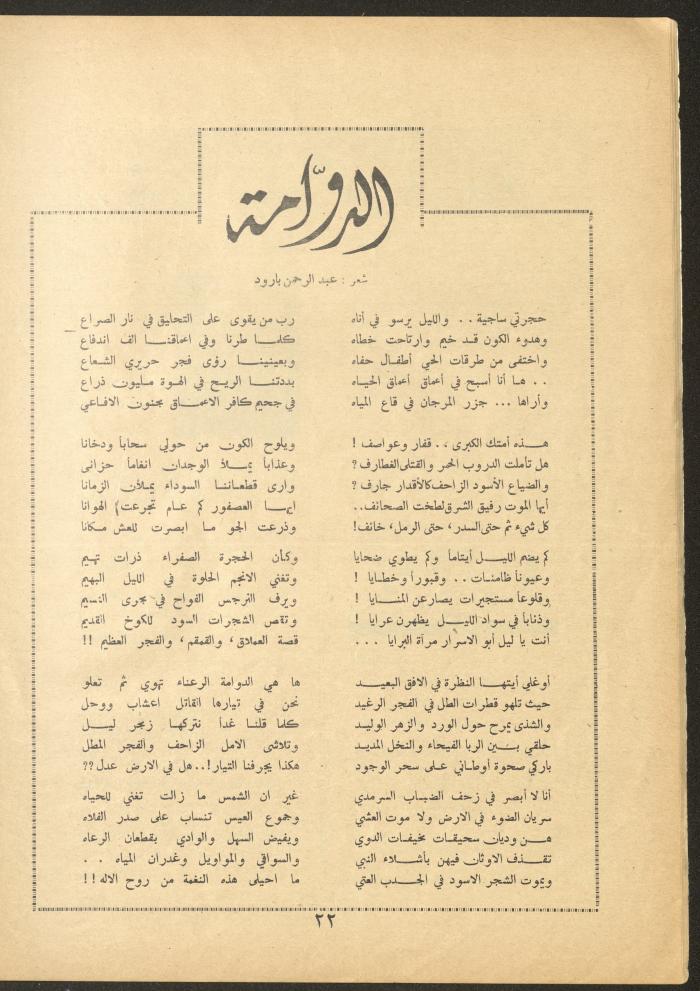 الدوّامة
شعر : عبد الرحمن بارود
حجرتي ساجية . . والليل يرسو في أناه
وهدوء الكون قد خيم وارتاحت خطاه
واختفى من طرقات الحي أطفال حفاه
. . هـا أنا أسبح في أعماق أعماق الحيـاه
وأراها ... جزر المرجان في قاع المياه
هـذه أمتك الكبرى . . قفار وعواصف !
هل تأملت الدروب الحمر والقتلى الغطارف ؟
والضياع الأسود الزاحف كالأقدار جارف ؟
أيها الموت رفيق الشرق لطخت الصحائف . .
كل شيء ثم حتى السدر ، حتى الرمل ، خائف !
كم يضم الليـل أيتاماً وكم يطوي ضحايا
وعيوناً ظامئـات . . وقبوراً وخطـايا !
وقلوعاً مستجيرات يصارعن المنـايا !
وذئاباً في سواد الليـل يظهرن عرايا !
أنت يا ليل أبو الاسرار مرآة البرايا ...
أوغلي أيتهـا النظرة في الافق البعيـد
حيث تلهو قطرات الطل في الفجر الرغيد
والشذى يمرح حول الورد والزهر الوليد
حلقي بـين الربا الفيحاء والنخل المديـد
باركي صحوة أوطـاني عـلى سحر الوجود
أنا لا أبصر في زحف الضبـاب السرمدي
سريان الضوء في الارض ولا موت العشي
هـن وديان سحيقـات مخيفـات الدوي
تقـذف الاوثان فيهن بأشـلاء النبي
ويموت الشجر الاسود في الجـدب العتي
رب من يقوى على التحليق في نار الصراع
كلمـا طرنا وفي اعماقنـا الف اندفاع
وبعينينـا رؤى فجر حريري الشعاع
بددتنـا الريـح في الهوة مـليون ذراع
في جحيم كافر الاعمـاق مجنون الافاعي
ويلوح الكون من حولي سحاباً ودخانا
وعذاباً يمـلأ الوجدان انغاماً حزانى
وارى قطعاننـا السوداء يملأن الزمانا
ايهـا العصفور كم عـام تجرعت الهوانا
وذرعت الجو مـا ابصرت للعش مكانا
وكأن الحجرة الصفراء ذرات تهيم
وتغني الانجم الحلوة في الليل البهيم
ويرف النرجس الفواح في مجرى النسيم
وتقص الشجرات السود للكوخ القديم
قصة العملاق ، والقمقم ، والفجر العظيم !!
ها هي الدوامة الرعناء تهوي ثم تعلو
نحن في تيارها القاتل اعشاب ووحل
كلما قلنا غداً نتركها زمجر ليـل
وتلاشى الامل الزاحف والفجر المطل
هكذا يجرفنا التيار ! . . هل في الارض عدل ؟؟
غير ان الشمس ما زالت تغني للحياه
وجموع العيس تنساب على صدر الفلاه
ويفيض السهل والوادي بقطعان الرعاه
والسواقي والمواويل وغدران المياه . .
ما احيلى هذه النغمة من روح الاله !!
٢٢